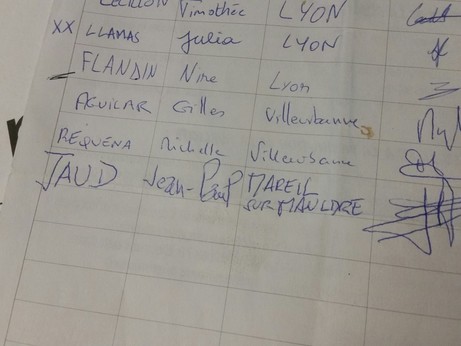 Timothée LYON
XX LLAMAS Julia LYON
FLANDIN Nine Lyon
AGUILAR Gilles Villeurbanne
REQUENA Michelle Villeurbanne
JAUD Jean-Paul MAREIL
SUR MAULDRE